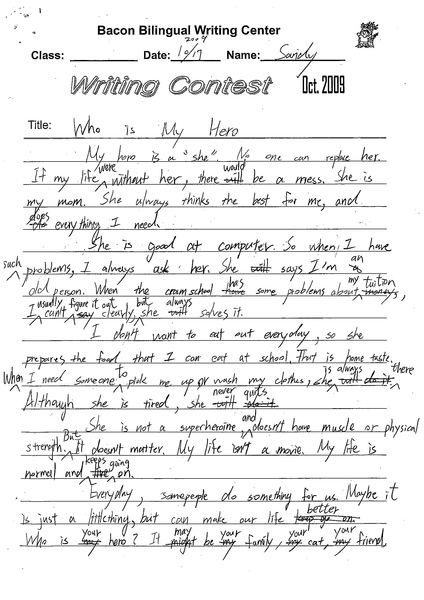 Bacon Bilingual Writing Center
2009
Class: Date: 10/17 Name: Sandy
Writing Contest Oct. 2009
Title: Who is My Hero
My hero is a "she". No one can replace her.
were would
If my life without her, there will be a mess. She is
my mom. She always thinks the best for me, and
does
do everything I need.
She is good at computer. So when I have
such problems, I always ask her. She will says I'm an
old person. When the cram school have has some problems about my tuition money,
usually figure it out but always
I can't say clearly, she will solves it.
I don't want to eat out everyday, so she
prepares the food that I can eat at school. That is home taste.
to is always there
When I need someone pick me up or wash my clothes, she will do it.
never quits
Although she is tired, she will do it.
and
She is not a superheroine doesn't have muscle or physical
But
strength. It doesn't matter. My life isn't a movie. My life is
keeps going
normal and live on.
Everyday, somepeople do something for us. Maybe it
better
is just a littlething, but can make our life keep go on.
your may your your your
Who is my hero? It might be my family, my cat, my friend